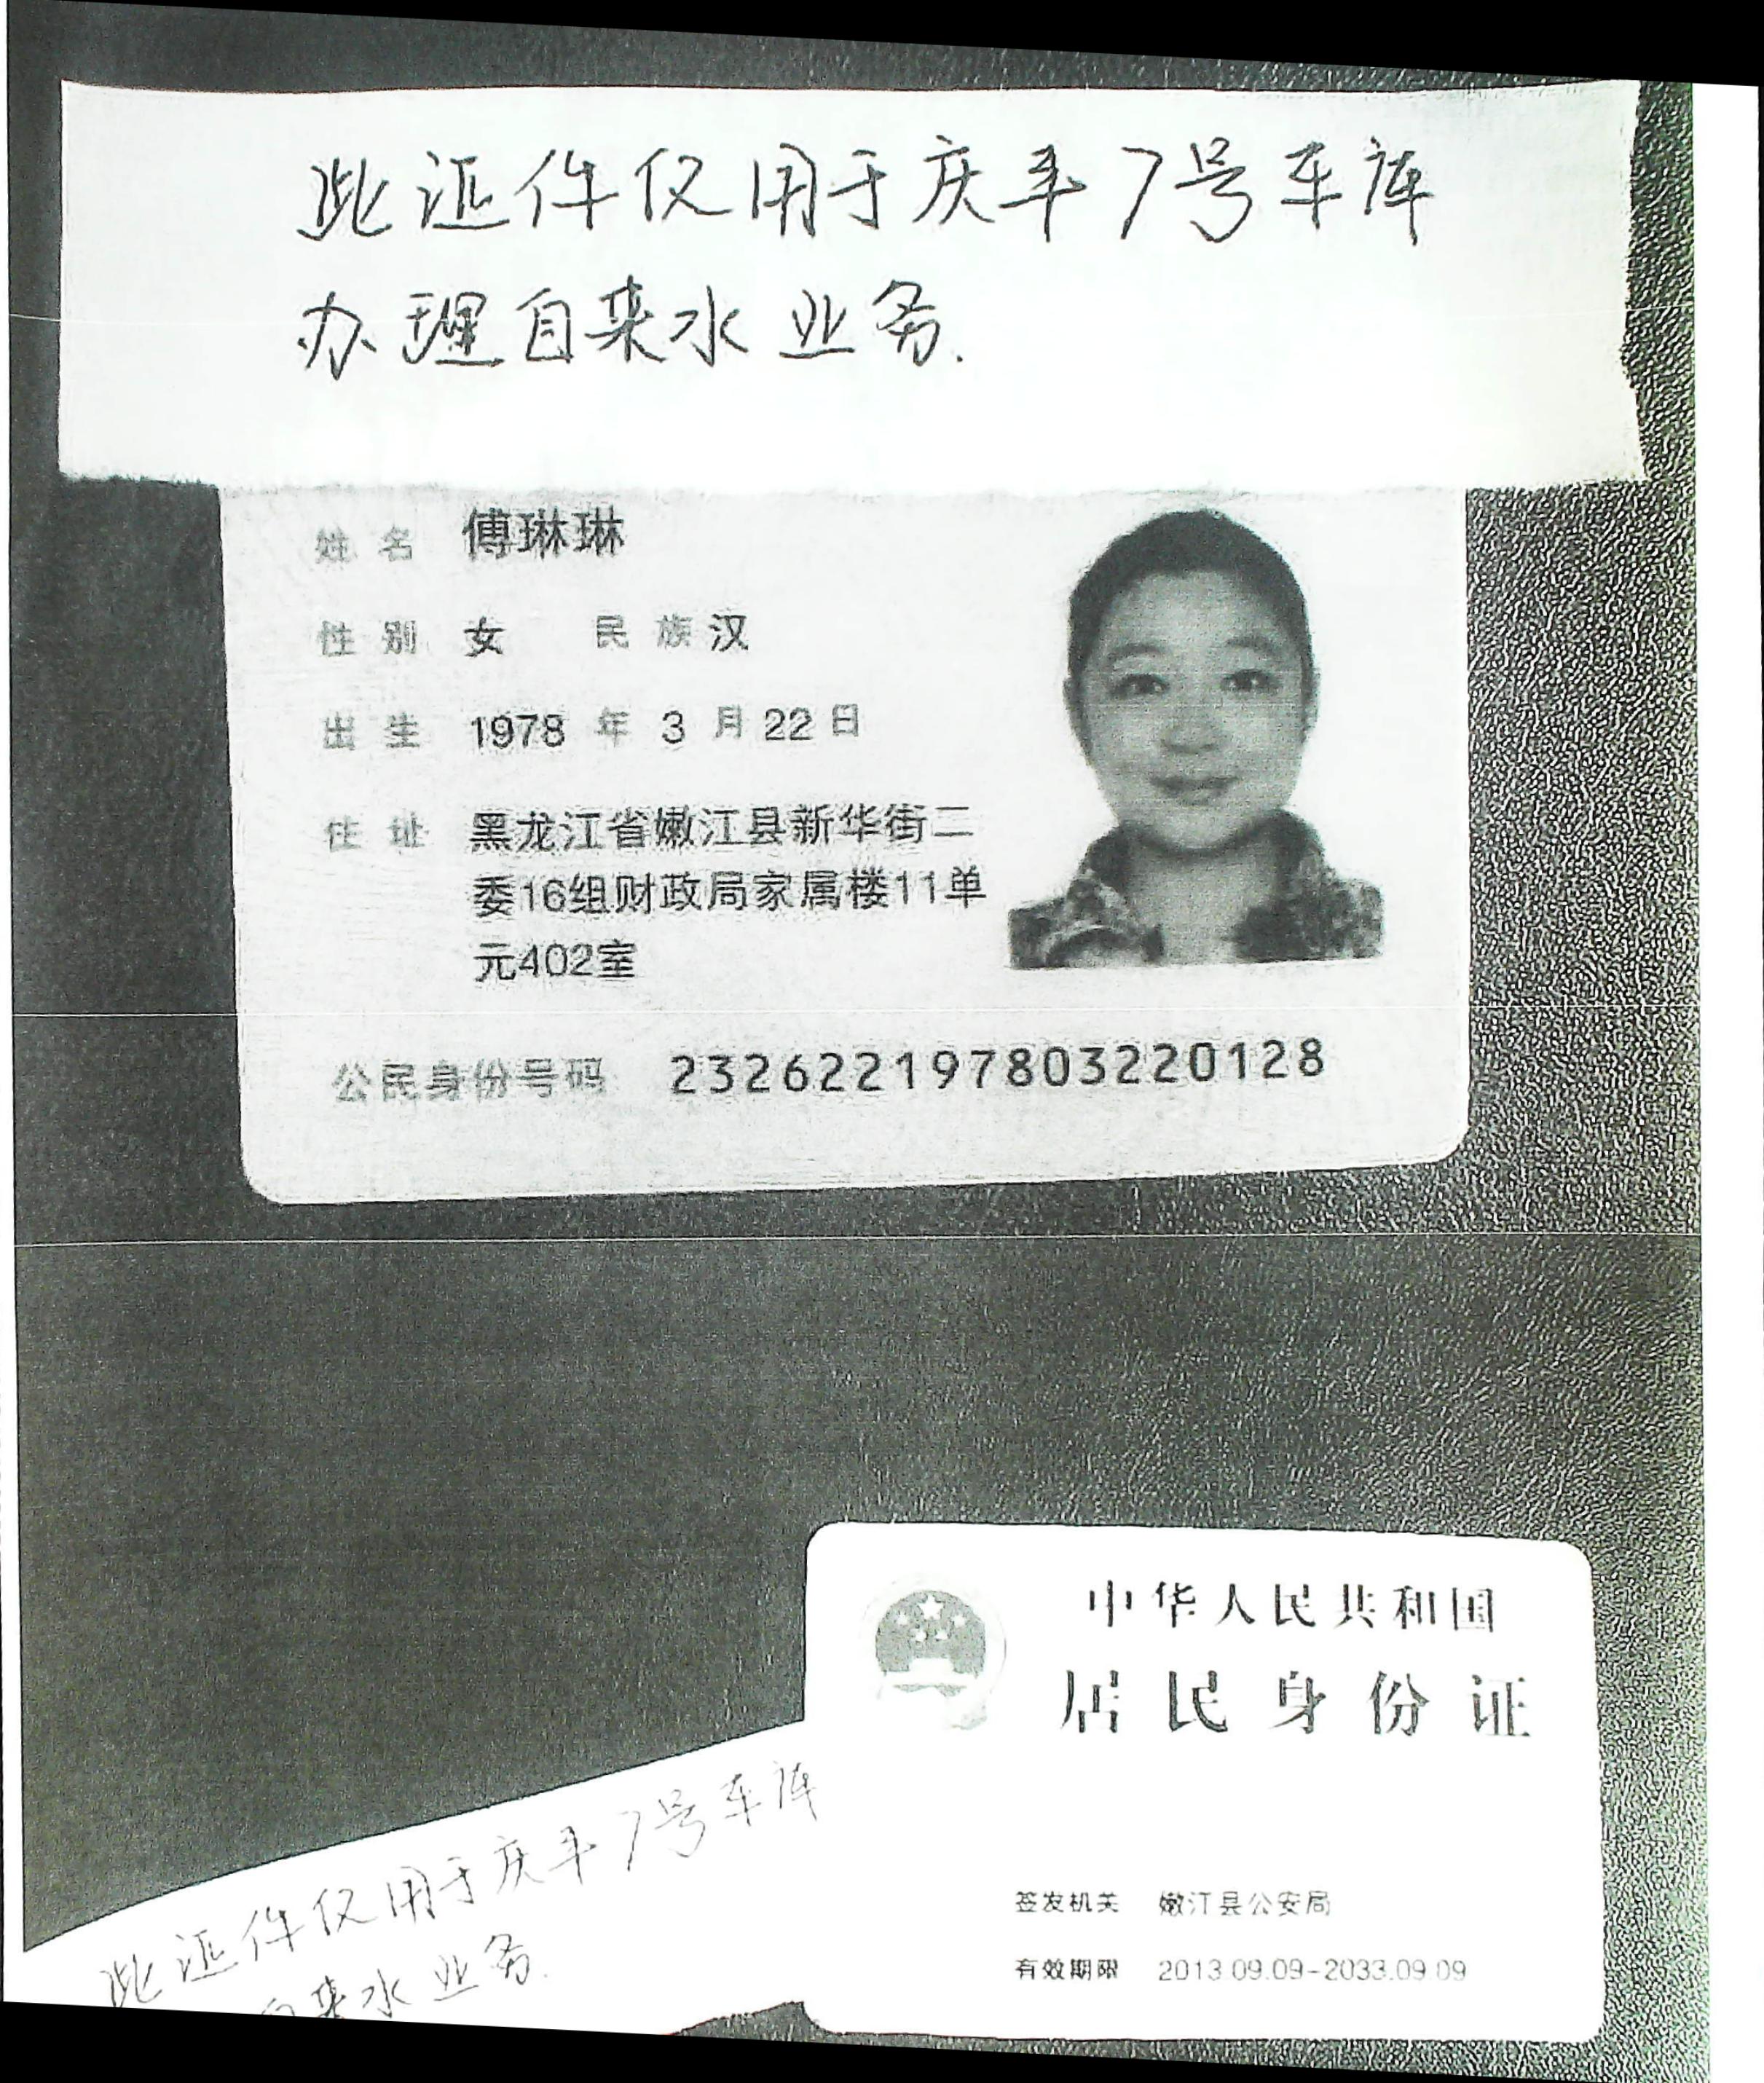 此证件仅用于庆丰7号车库
办理自来水业务.
姓名 傅琳琳
性别 女 民族 汉
出生 1978年3月22日
住址 黑龙江省嫩江县新华街二
委16组财政局家属楼11单
元402室
公民身份号码 232622197803220128
中华人民共和国
居民身份证
签发机关 嫩江县公安局
有效期限 2013.09.09-2033.09.09
此证件仅用于庆丰7号车库
自来水业务.